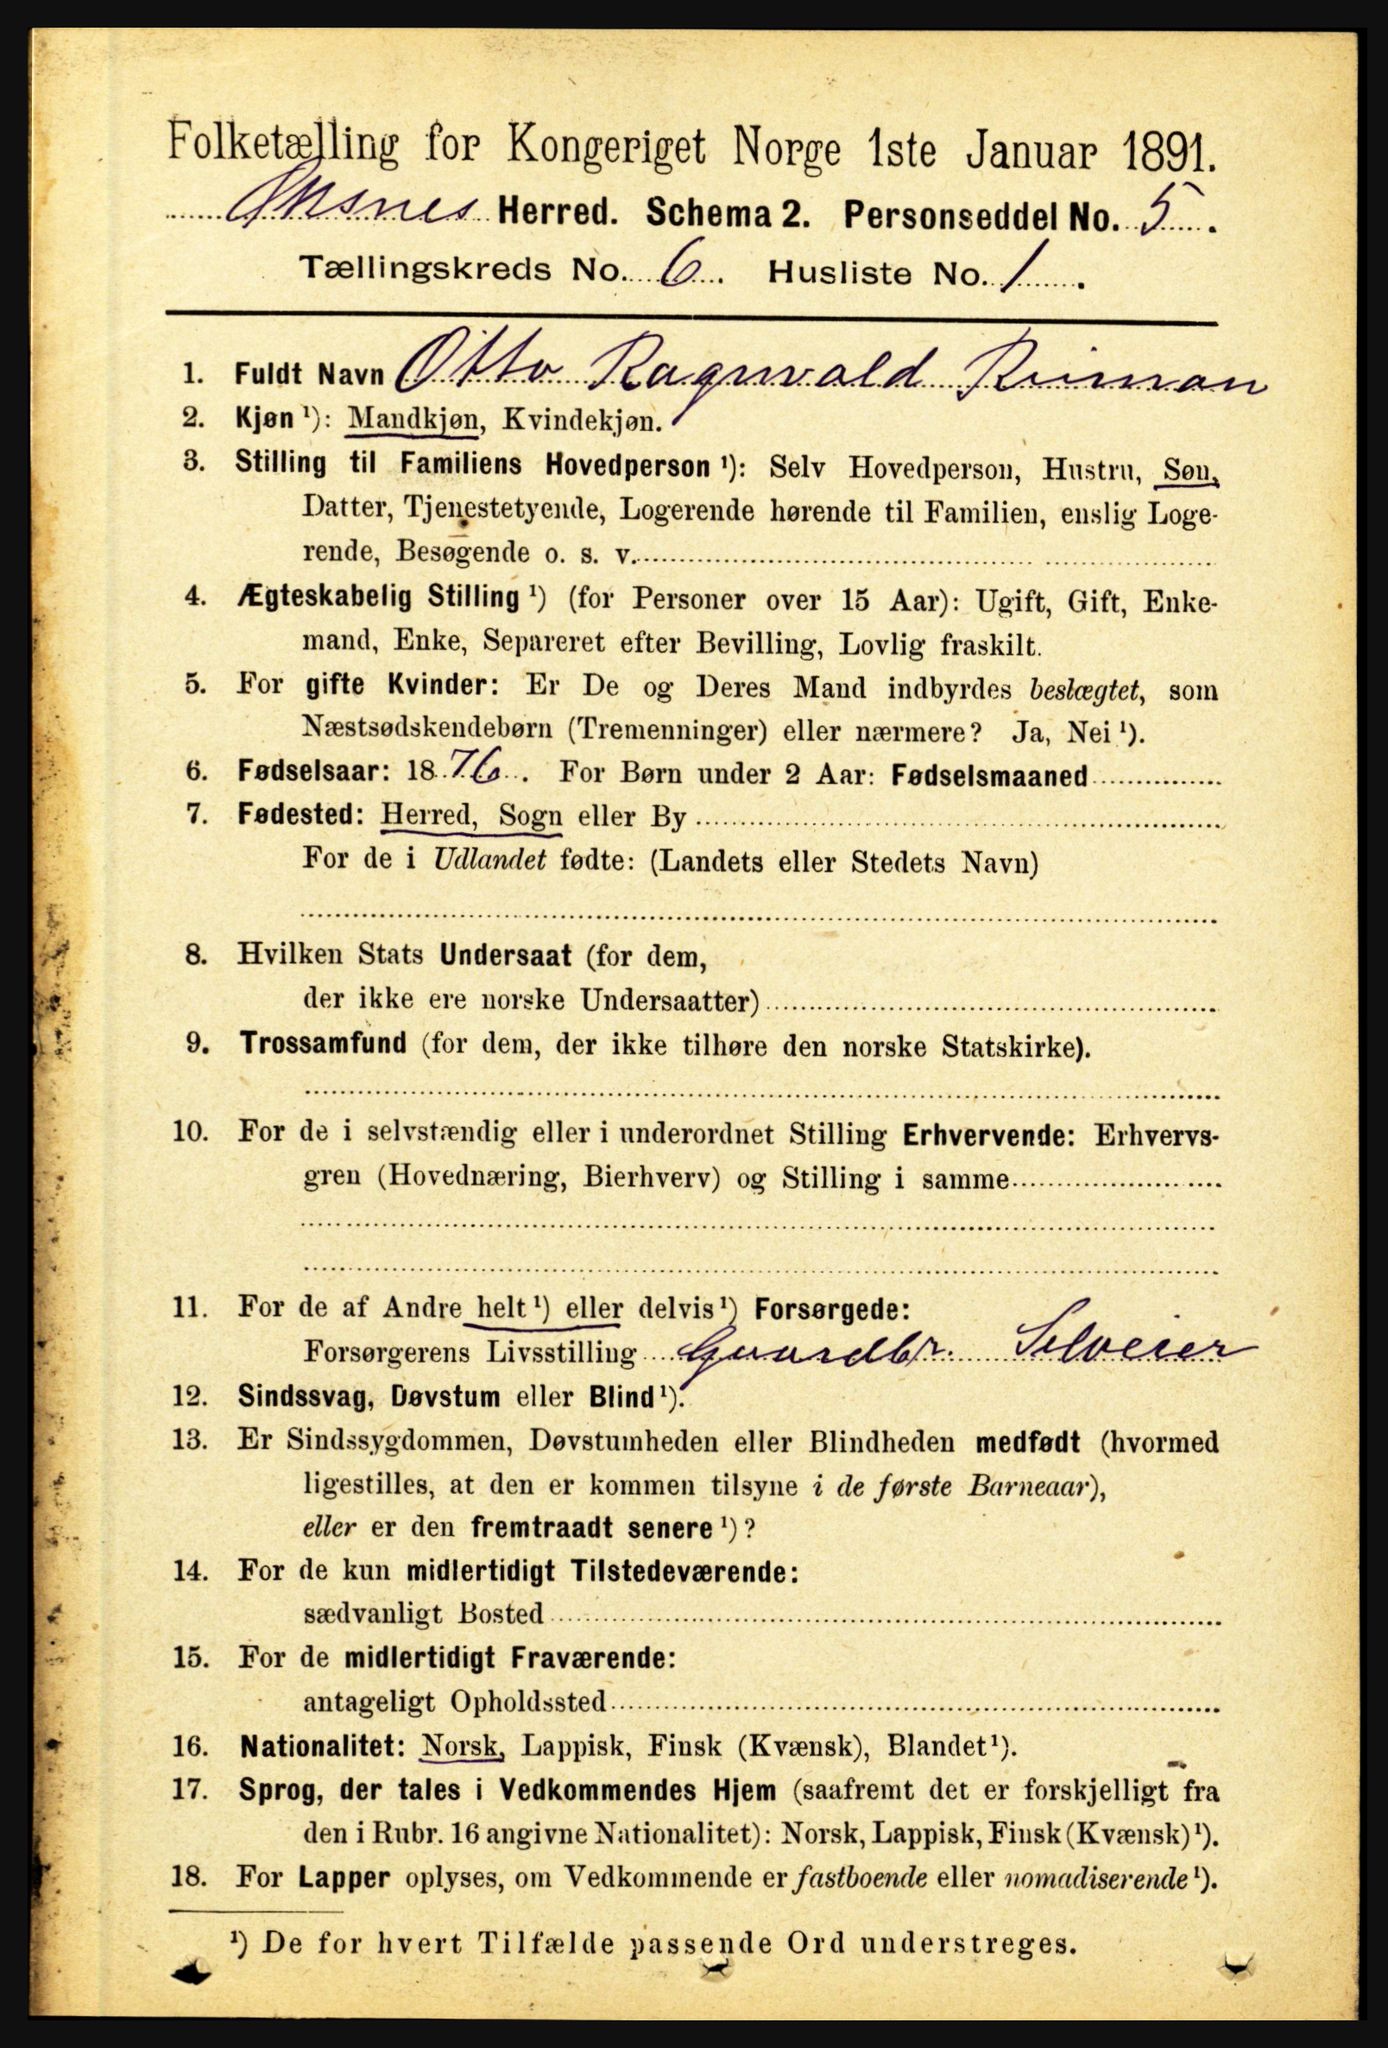 Folketælling for Kongeriget Norge 1ste Januar 1891.
Øksnes Herred. Schema 2. Personseddel No. 5.
Tællingskreds No. 6. Husliste No. 1.
1. Fuldt Navn Otto Ragnvald
2. Kjøn ¹): Mandkjøn, Kvindekjøn.
3. Stilling til Familiens Hovedperson ¹): Selv Hovedperson, Hustru, Søn,
Datter, Tjenestetyende, Logerende hørende til Familien, enslig Loge-
rende, Besøgende o. s. v.
4. Ægteskabelig Stilling ¹) (for Personer over 15 Aar): Ugift, Gift, Enke-
mand, Enke, Separeret efter Bevilling, Lovlig fraskilt.
5. For gifte Kvinder: Er De og Deres Mand indbyrdes beslægtet, som
Næstsødskendebørn (Tremenninger) eller nærmere? Ja, Nei ¹).
6. Fødselsaar: 1876. For Børn under 2 Aar: Fødselsmaaned
7. Fødested: Herred, Sogn eller By
For de i Udlandet fødte: (Landets eller Stedets Navn)
8. Hvilken Stats Undersaat (for dem,
der ikke ere norske Undersaatter)
9. Trossamfund (for dem, der ikke tilhøre den norske Statskirke).
10. For de i selvstændig eller i underordnet Stilling Erhvervende: Erhvervs-
gren (Hovednæring, Bierhverv) og Stilling i samme
11. For de af Andre helt ¹) eller delvis ¹) Forsørgede:
Forsørgerens Livsstilling Gaardbr. Selveier
12. Sindssvag, Døvstum eller Blind ¹).
13. Er Sindssygdommen, Døvstumheden eller Blindheden medfødt (hvormed
ligestilles, at den er kommen tilsyne i de første Barneaar),
eller er den fremtraadt senere ¹)?
14. For de kun midlertidigt Tilstedeværende:
sædvanligt Bosted
15. For de midlertidigt Fraværende:
antageligt Opholdssted
16. Nationalitet: Norsk, Lappisk, Finsk (Kvænsk), Blandet ¹).
17. Sprog, der tales i Vedkommendes Hjem (saafremt det er forskjelligt fra
den i Rubr. 16 angivne Nationalitet): Norsk, Lappisk, Finsk (Kvænsk) ¹).
18. For Lapper oplyses, om Vedkommende er fastboende eller nomadiserende ¹).
¹) De for hvert Tilfælde passende Ord understreges.